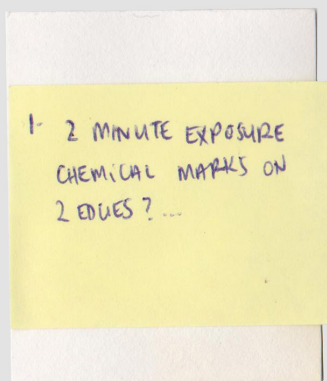 1- 2 MINUTE EXPOSURE
CHEMICAL MARKS ON
2 EDGES? ...